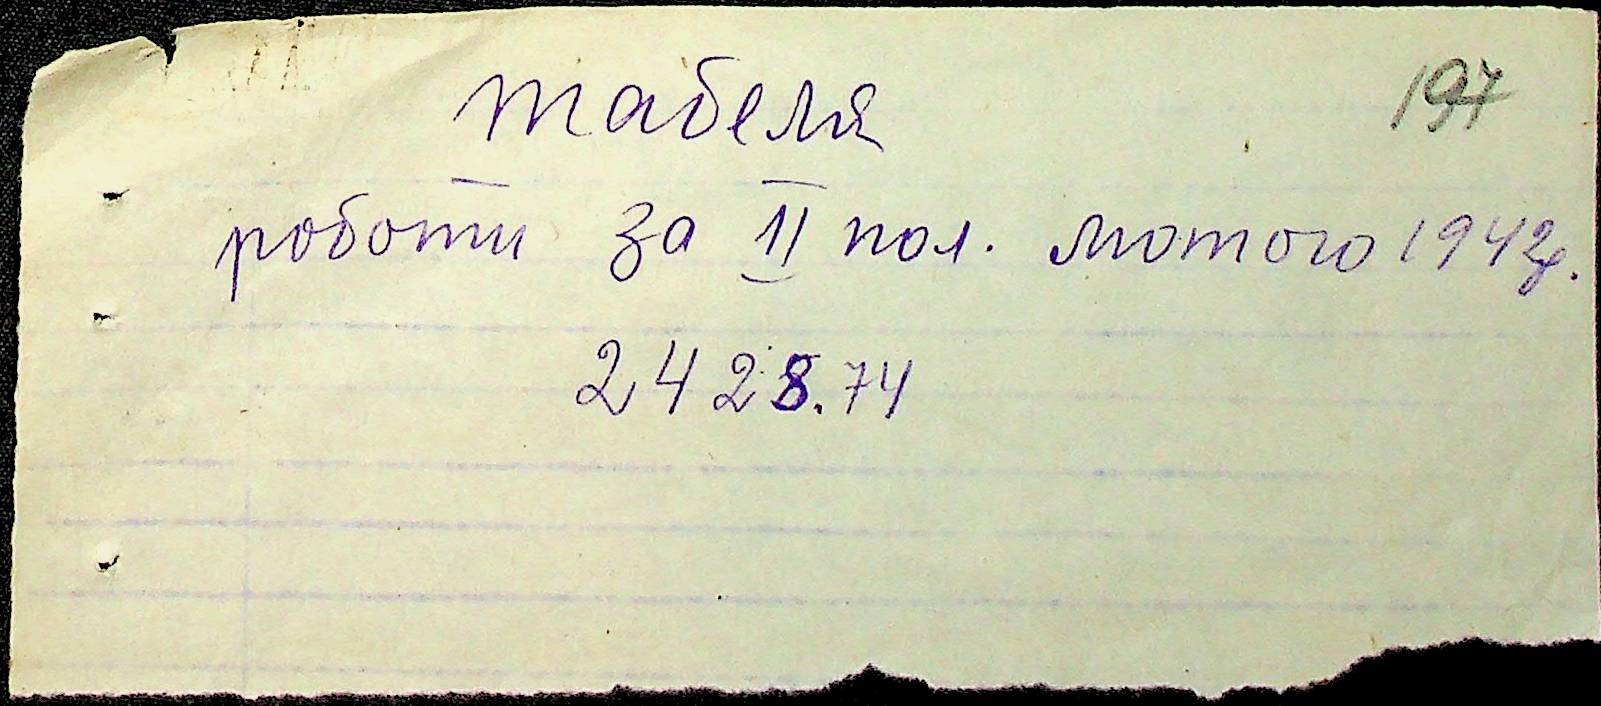 197
табеля
роботи за II пол. лютого 1942р.
2428.74